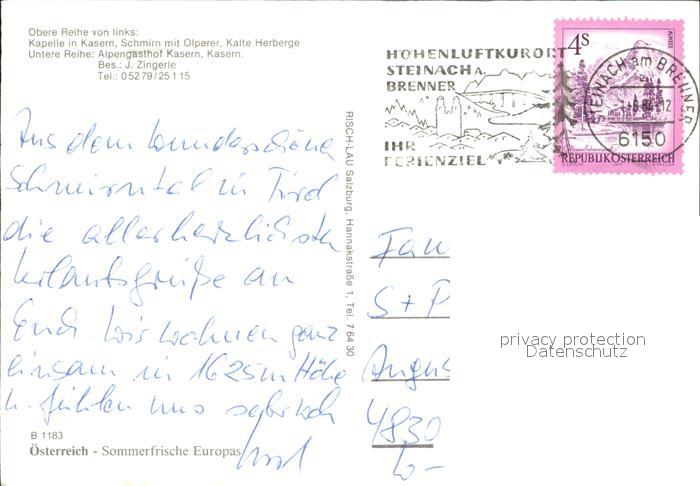 Obere Reihe von links:
Kapelle in Kasern, Schmirn mit Olperer, Kalte Herberge
Untere Reihe: Alpengasthof Kasern, Kasern.
Bes.: J. Zingerle
Tel.: 05279/25115
HÖHENLUFTKURORT
STEINACH A.
BRENNER
IHR
FERIENZIEL
4S
STEINACH am BRENNER
6150
REPUBLIK ÖSTERREICH
Aus dem wunderschönen
Schmirntal in Tirol
die allerherzlichsten
Urlaubsgrüße an
Euch. Wir wohnen ganz
einsam in 1625m Höhe
u. fühlen uns sehr wohl
RISCH-LAU Salzburg, Hannakstraße 1, Tel. 7 64 30
Fam
S + P
Augus
4830
privacy protection
Datenschutz
B 1183
Österreich - Sommerfrische Europas